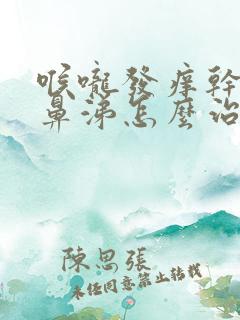 喉嚨發癢幹
鼻涕怎麼治
陳思張
未经同意禁止转载